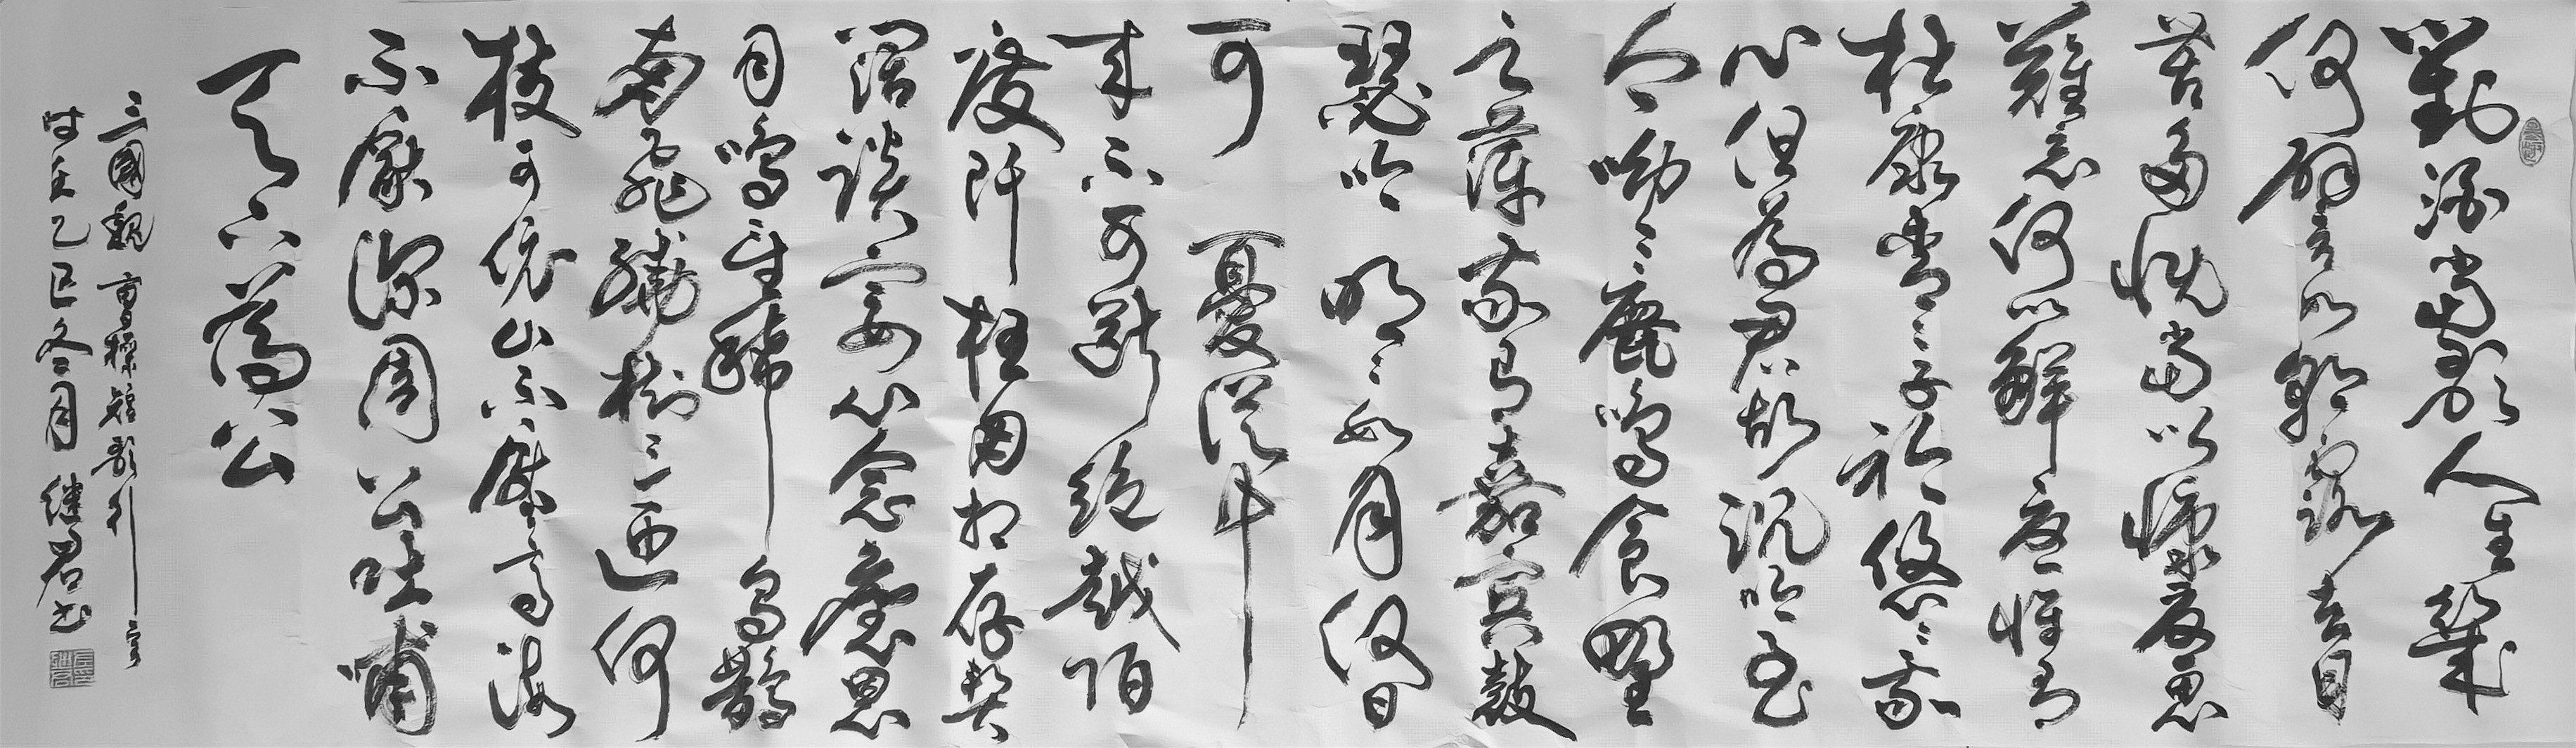 對酒當歌人生幾
何譬如朝露去日
苦多慨當以慷憂思
難忘何以解憂惟有
杜康青〻子衿悠〻我
心但為君故沉吟至
今呦〻鹿鳴食野
之蘋我有嘉賓鼓
瑟吹明〻如月何日
可憂從中
來不可斷絕越陌
度阡枉用相存契
闊談宴心念舊恩
月鳴星稀烏鵲
南飛繞樹三匝何
枝可依山不厭高海
不厭深周公吐哺
天下為公
三國魏曹操短歌行
時在乙巳冬月继君书